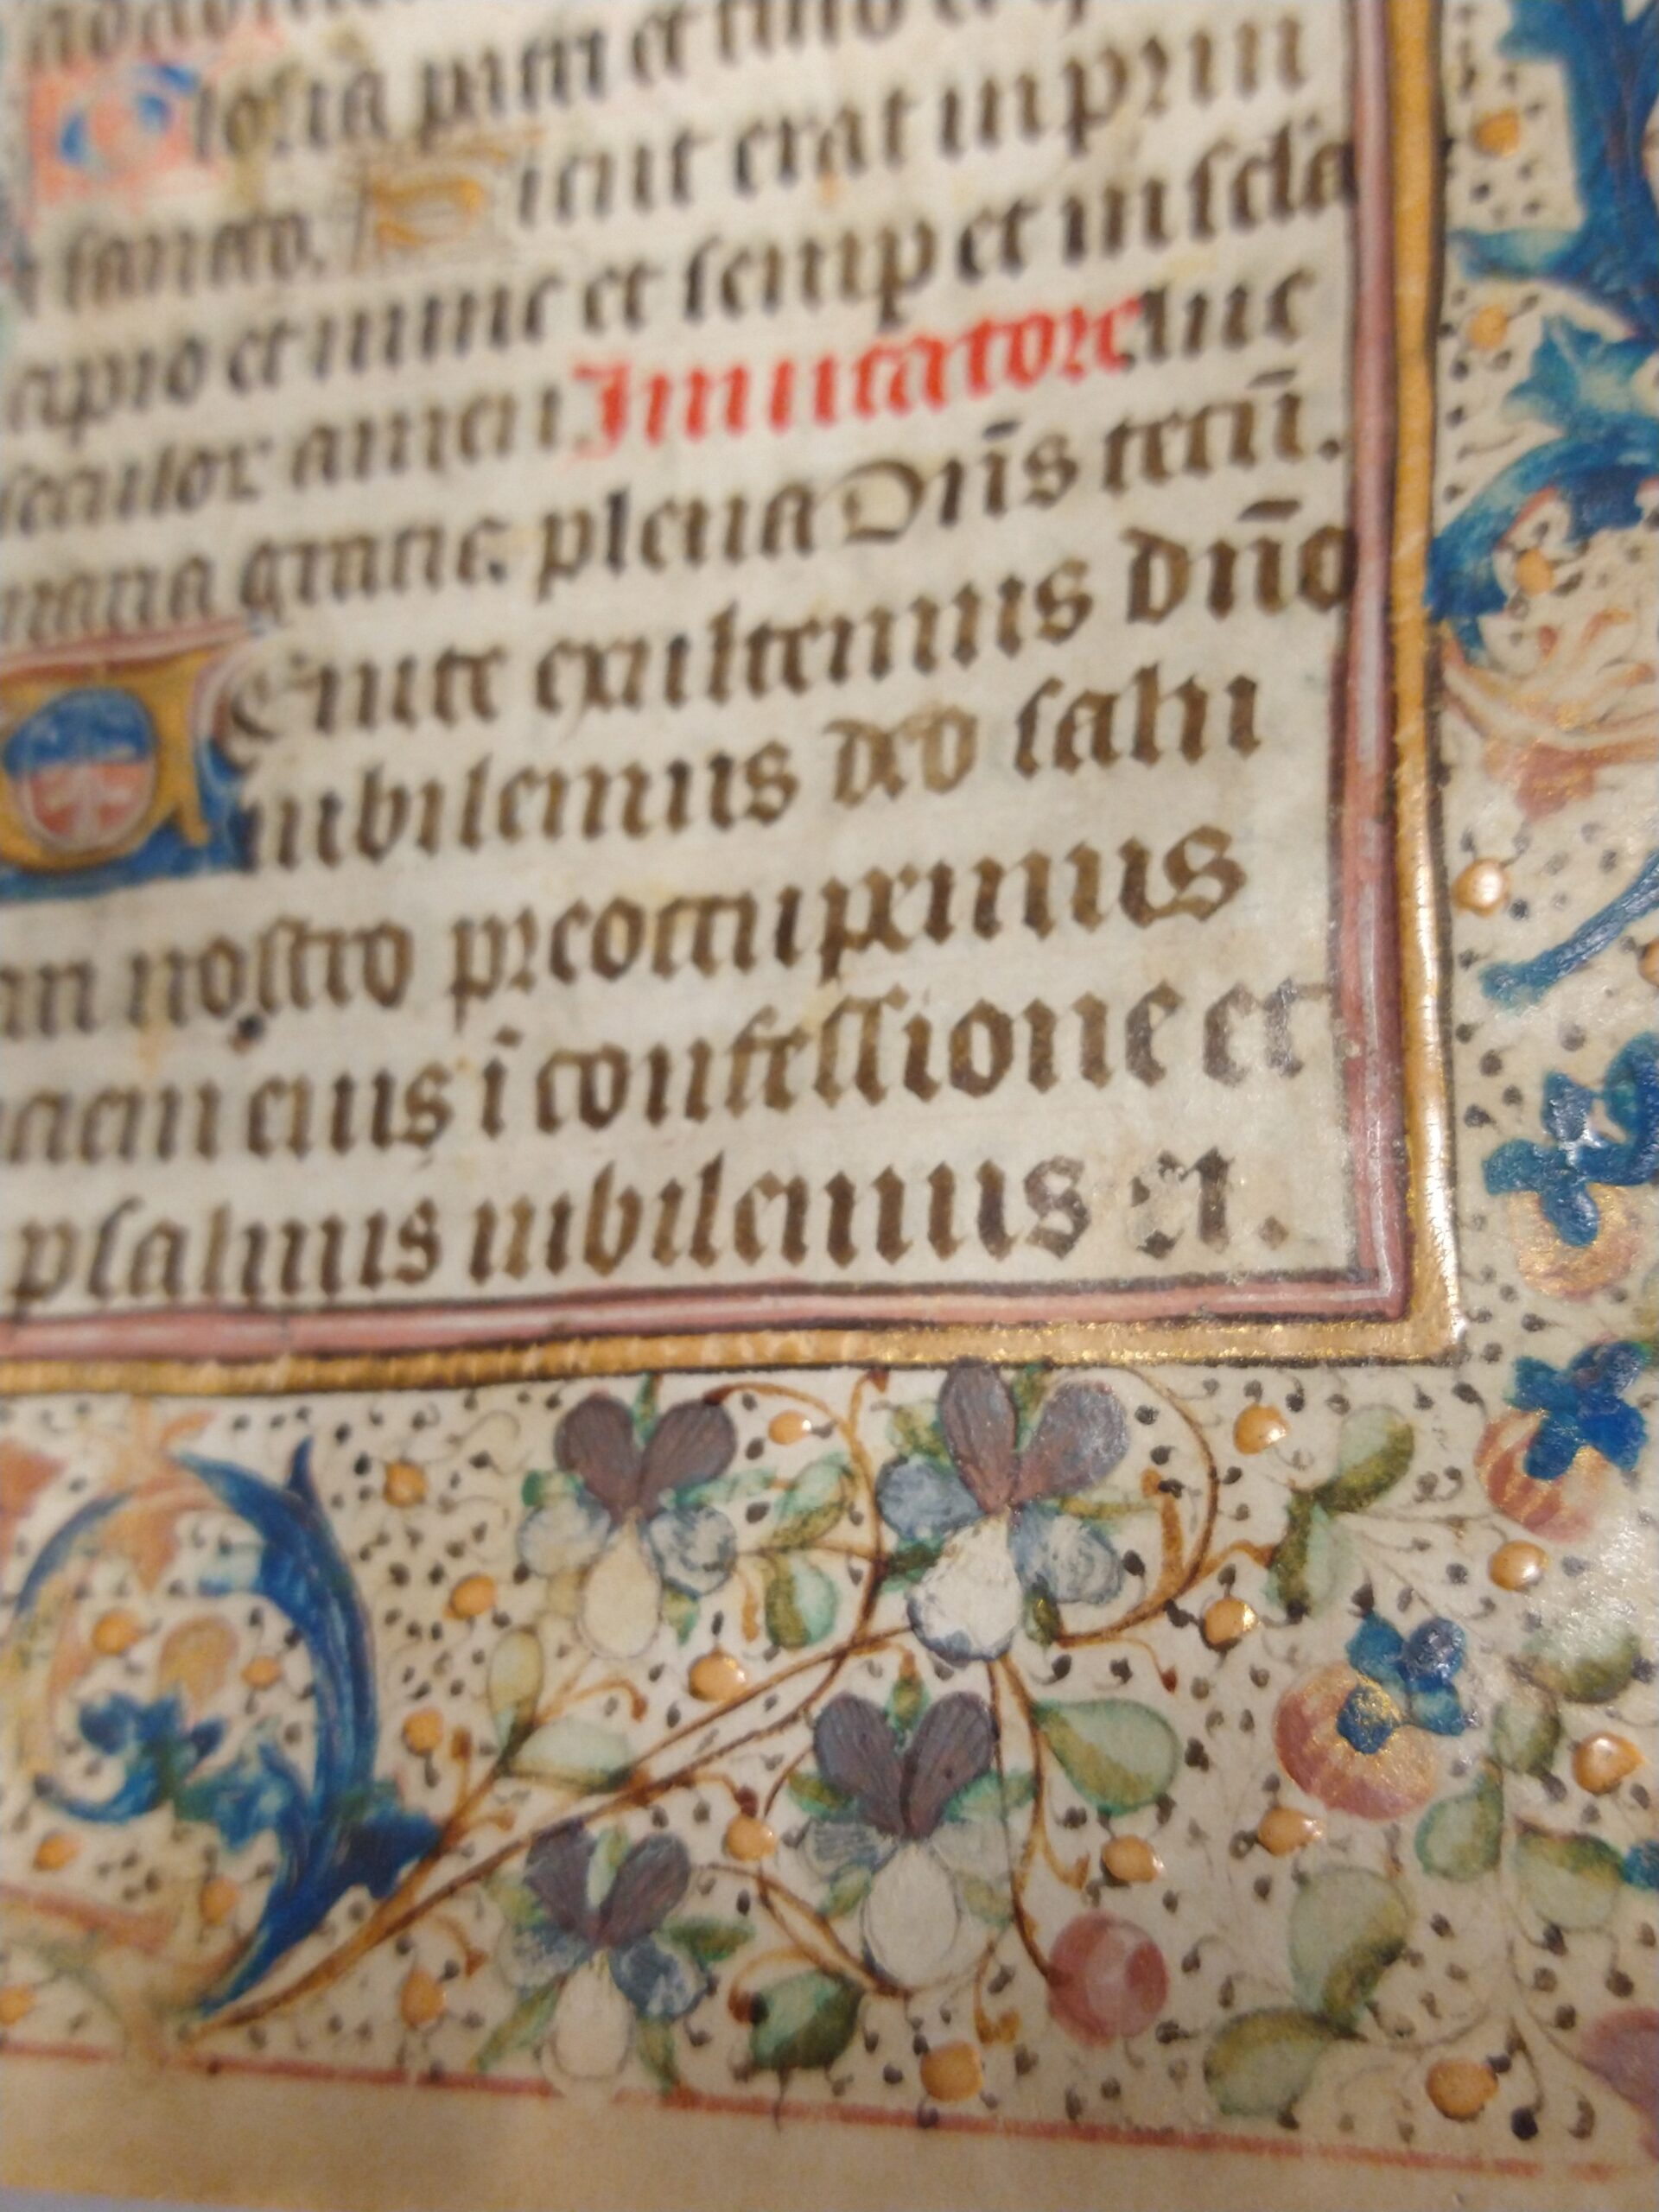 loria patri et filio et
sancto. Sicut erat in prin
cipio et nunc et semp et in scła
seculor amen Inuitatore Aue
maria gratie plena Dn̄s tecū.
Uenite exultemus dn̄o
iubilemus deo salu
nostro preoccupemus
ciem eius ī confessione et
psalmis iubilemus ei.